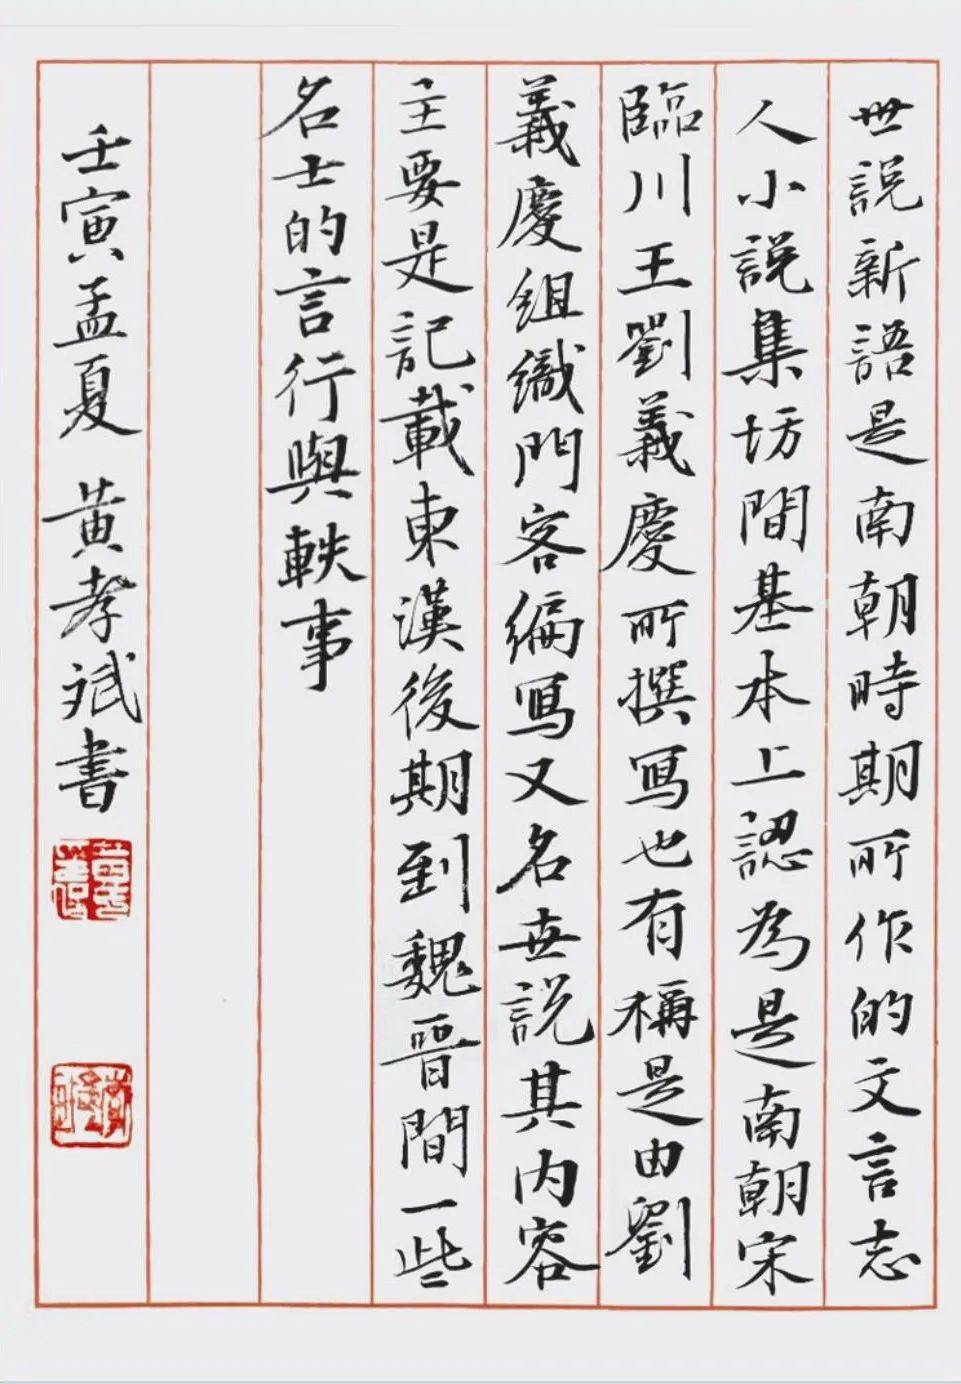 世説新語是南朝時期所作的文言志
人小説集坊間基本上認為是南朝宋
臨川王劉義慶所撰寫也有稱是由劉
義慶組織門客編寫又名世説其内容
主要是記載東漢後期到魏晉間一些
名士的言行與軼事
壬寅孟夏 黄孝斌書